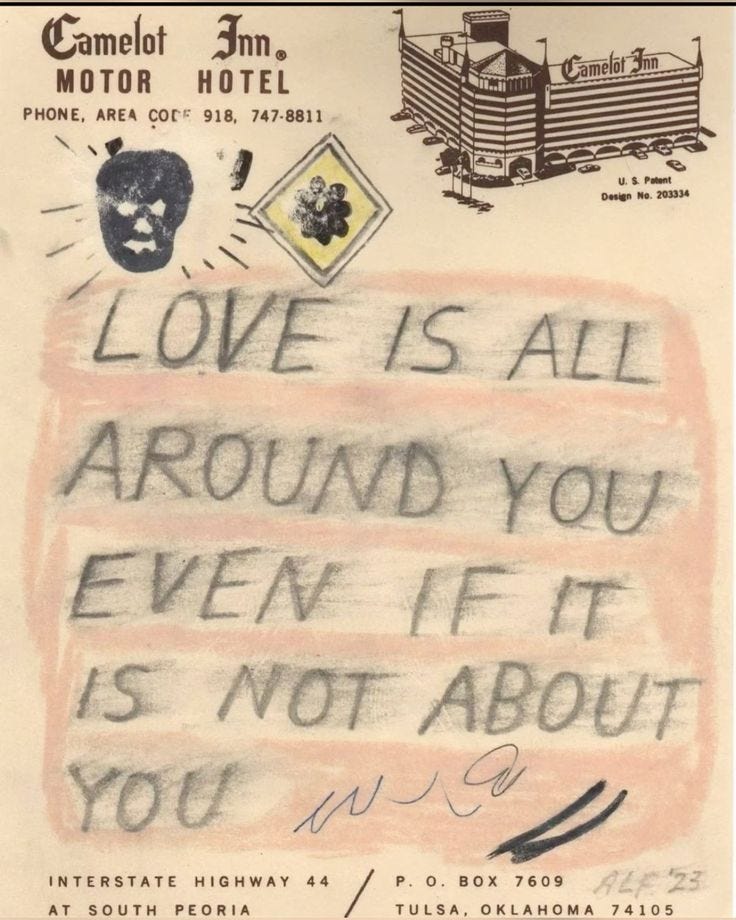 Camelot Inn®
MOTOR HOTEL
PHONE, AREA CODE 918, 747-8811
Camelot Inn
U. S. Patent
Design No. 203334
LOVE IS ALL
AROUND YOU
EVEN IF IT
IS NOT ABOUT
YOU
INTERSTATE HIGHWAY 44
AT SOUTH PEORIA
P. O. BOX 7609
TULSA, OKLAHOMA 74105
ALF '23